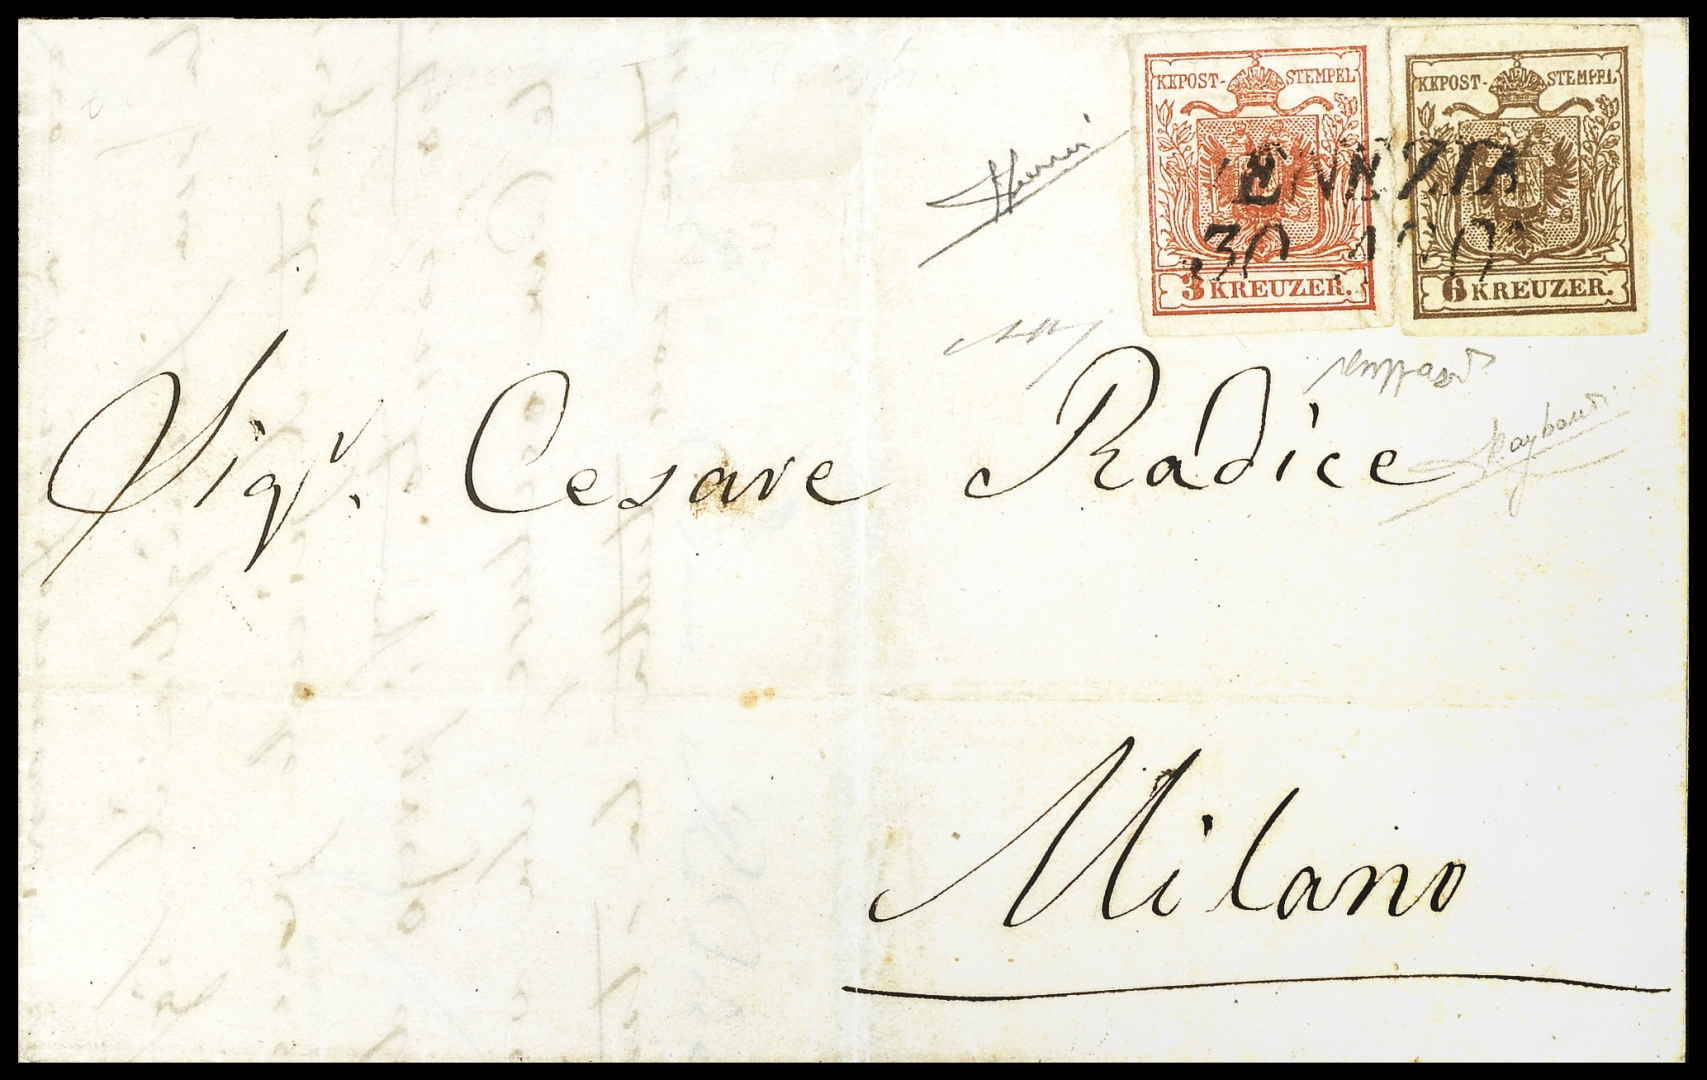 KKPOST-STEMPEL
3 KREUZER.
KKPOST-STEMPEL
6 KREUZER.
VENEZIA
30 AGO
Sigr. Cesare Radice
Raybaudi
Milano